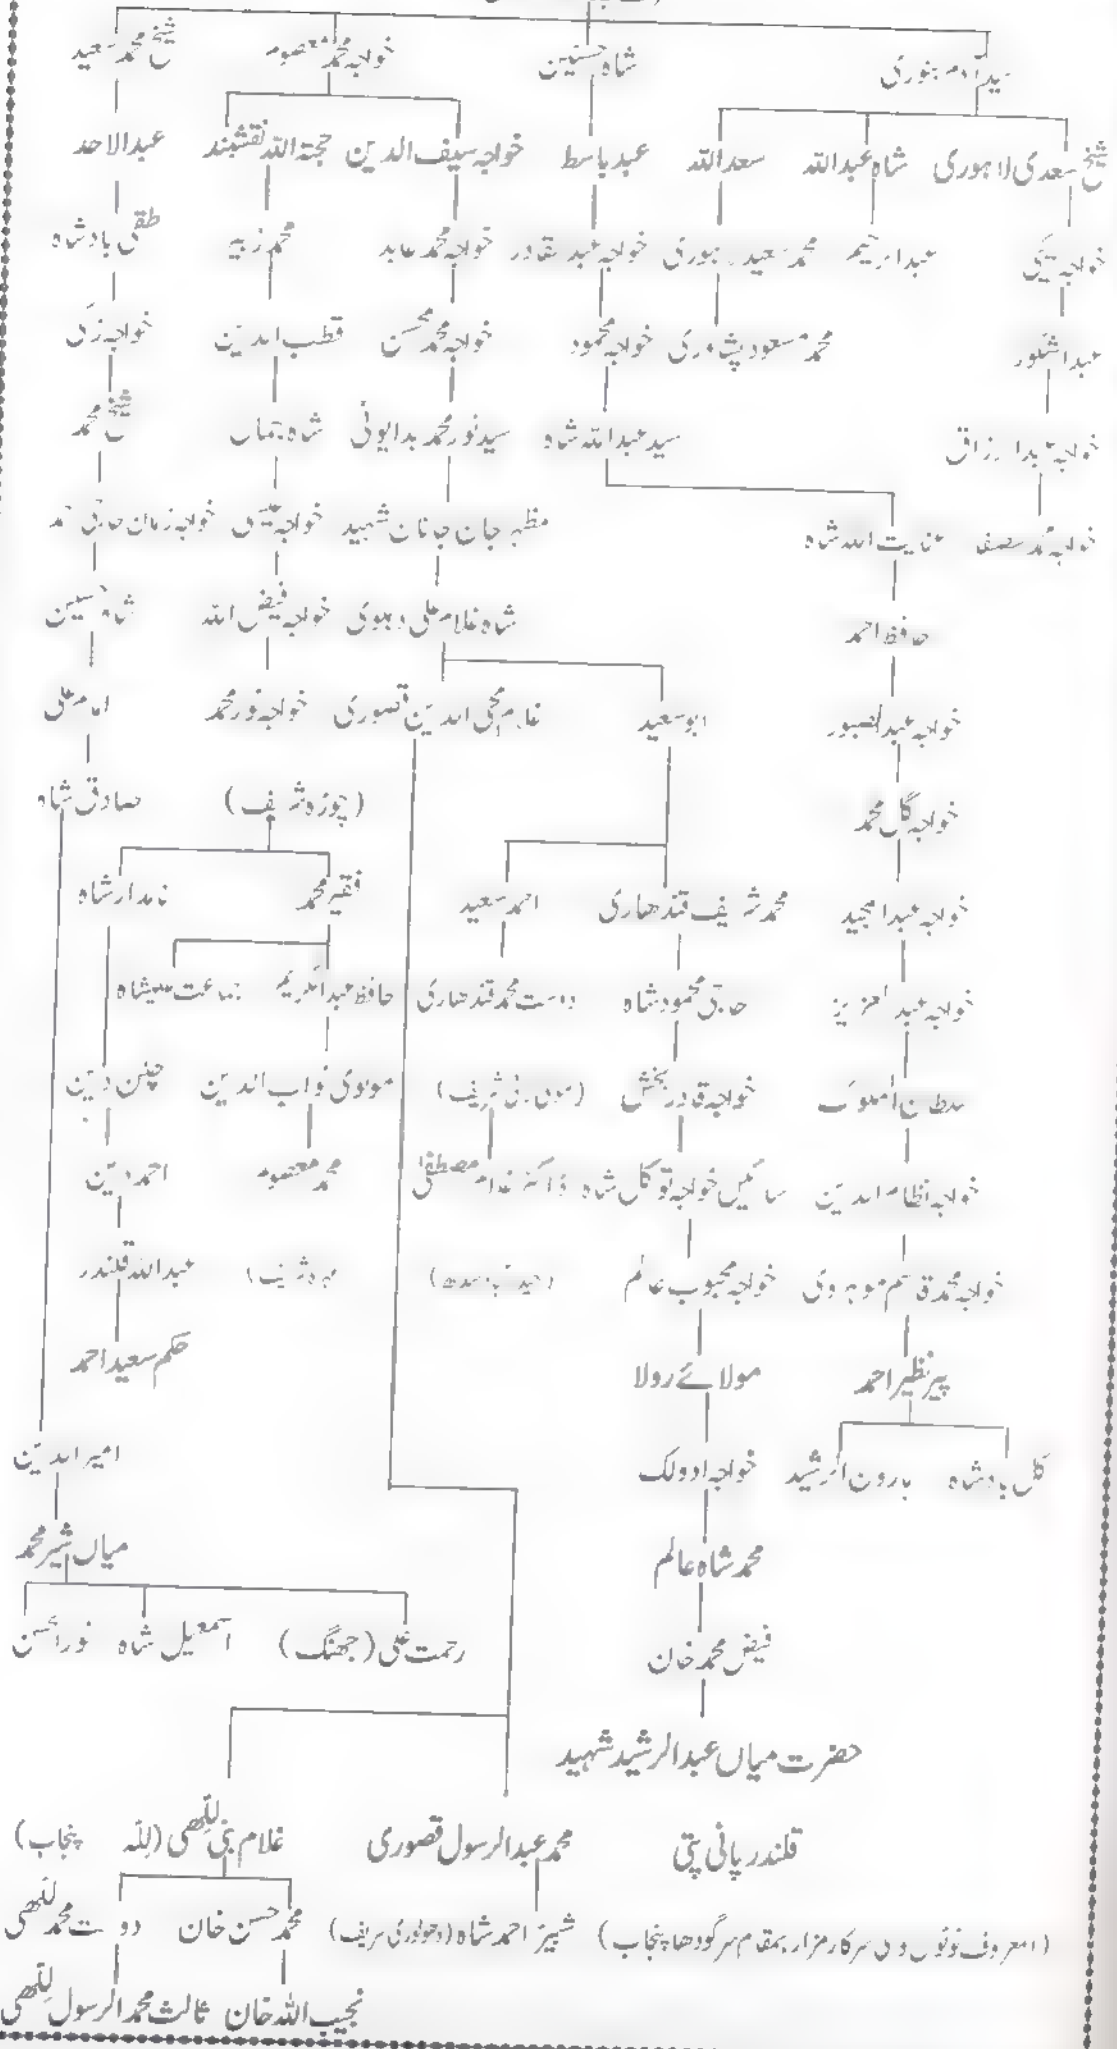 سید آدم بنوری شاہ حسین خواجہ محمد معصوم شیخ محمد سعید
شیخ سعدی لاہوری شاہ عبداللہ سعد اللہ عبد باسط خواجہ سیف الدین حجتہ اللہ نقشبند عبد الاحد
خواجہ یحیٰی عبد الرحیم محمد سعید لاہوری خواجہ عبد القادر خواجہ محمد عابد محمد زبیر بادشاہ
عبد الشکور محمد مسعود پشاوری خواجہ محمود خواجہ محمد محسن قطب الدین خواجہ زکی
خواجہ عبد الرزاق سید عبد اللہ شاہ سید نور محمد بدایونی شاہ جمال شیخ محمد
خواجہ محمد عنایت اللہ شاہ مظہر جان جاناں شہید خواجہ عیسیٰ خواجہ زمان حاجی احمد
حافظ احمد شاہ غلام علی دہلوی خواجہ فیض اللہ شاہ حسین
خواجہ عبد الصبور ابو سعید غلام محی الدین قصوری خواجہ نور محمد امام علی
خواجہ گل محمد (چورہ شریف) صادق شاہ
خواجہ عبد المجید محمد شریف قندھاری احمد سعید فقیر محمد نامدار شاہ
خواجہ عبد العزیز حاجی محمود شاہ دوست محمد قندھاری حافظ عبد الکریم جماعت علیشاہ
سلطان الملوک خواجہ قادر بخش (موسیٰ زئی شریف) مولوی نواب الدین چنن دین
خواجہ نظام الدین سائیں خواجہ توکل شاہ ڈاکٹر غلام مصطفیٰ محمد معصوم احمد دین
خواجہ محمد قاسم موہڑوی خواجہ محبوب عالم عبد اللہ قلندر
پیر نظیر احمد مولائے رولا حکم سعید احمد
گل بادشاہ ہارون الرشید خواجہ ادولک امیر الدین
محمد شاہ عالم میاں شیر محمد
فیض محمد خان رحمت علی (جھنگ) اسمعیل شاہ نور الحسن
حضرت میاں عبد الرشید شہید
قلندر پانی پتی محمد عبد الرسول قصوری غلام نبی للّٰھی (للہ پنجاب)
(المعروف نوٹوں والی سرکار مزار بمقام سرگودھا پنجاب) احمد شاہ محمد حسن خان دوست محمد للّٰھی
نجیب اللہ خان ثالث محمد الرسول للّٰھی